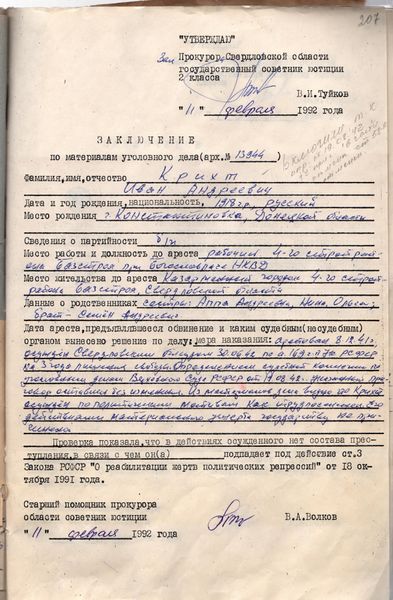 207
"УТВЕРЖДАЮ"
Зам Прокурор Свердловской области
государственный советник юстиции
2 класса
В.И.Туйков
"11" февраля 1992 года
ЗАКЛЮЧЕНИЕ
по материалам уголовного дела(арх.№ 13944)
Фамилия,имя,отчество Крихт
Иван Андреевич
Дата и год рождения,национальность, 1918 г.р, русский
Место рождения г. Константиновка, Донецкой области
Сведения о партийности б/п
Место работы и должность до ареста рабочий 4-го стройрай-
она Базстроя при Богословлаге НКВД
Место жительства до ареста Казарменный городок 4-го строй-
района Базстроя, Свердловской области
Данные о родственниках сестры: Алла Андреевна, Нина, Ольга;
брат - Семён Андреевич
Дата ареста,предъявлявшееся обвинение и каким судебным(несудебным)
органом вынесено решение по делу; мера наказания: арестован 8.12.41г.
осужден Свердловским облсудом 30.06.42 по ст. РСФСР
лишения свободы. Определением судебной коллегии по
уголовным делам Верховного Суда РСФСР от 42г. при-
говор оставлен без изменения. Из материалов дела видно, что Крихт
осужден по политическим мотивам.
действиями материального ущерба государству не при-
чинено
Проверка показала,что в действиях осужденного нет состава прес-
тупления,в связи с чем он(а) подпадает под действие ст.3
Закона РСФСР "О реабилитации жертв политических репрессий" от 18 ок-
тября 1991 года.
Старший помощник прокурора
области советник юстиции
В.А.Волков
"11" февраля 1992 года